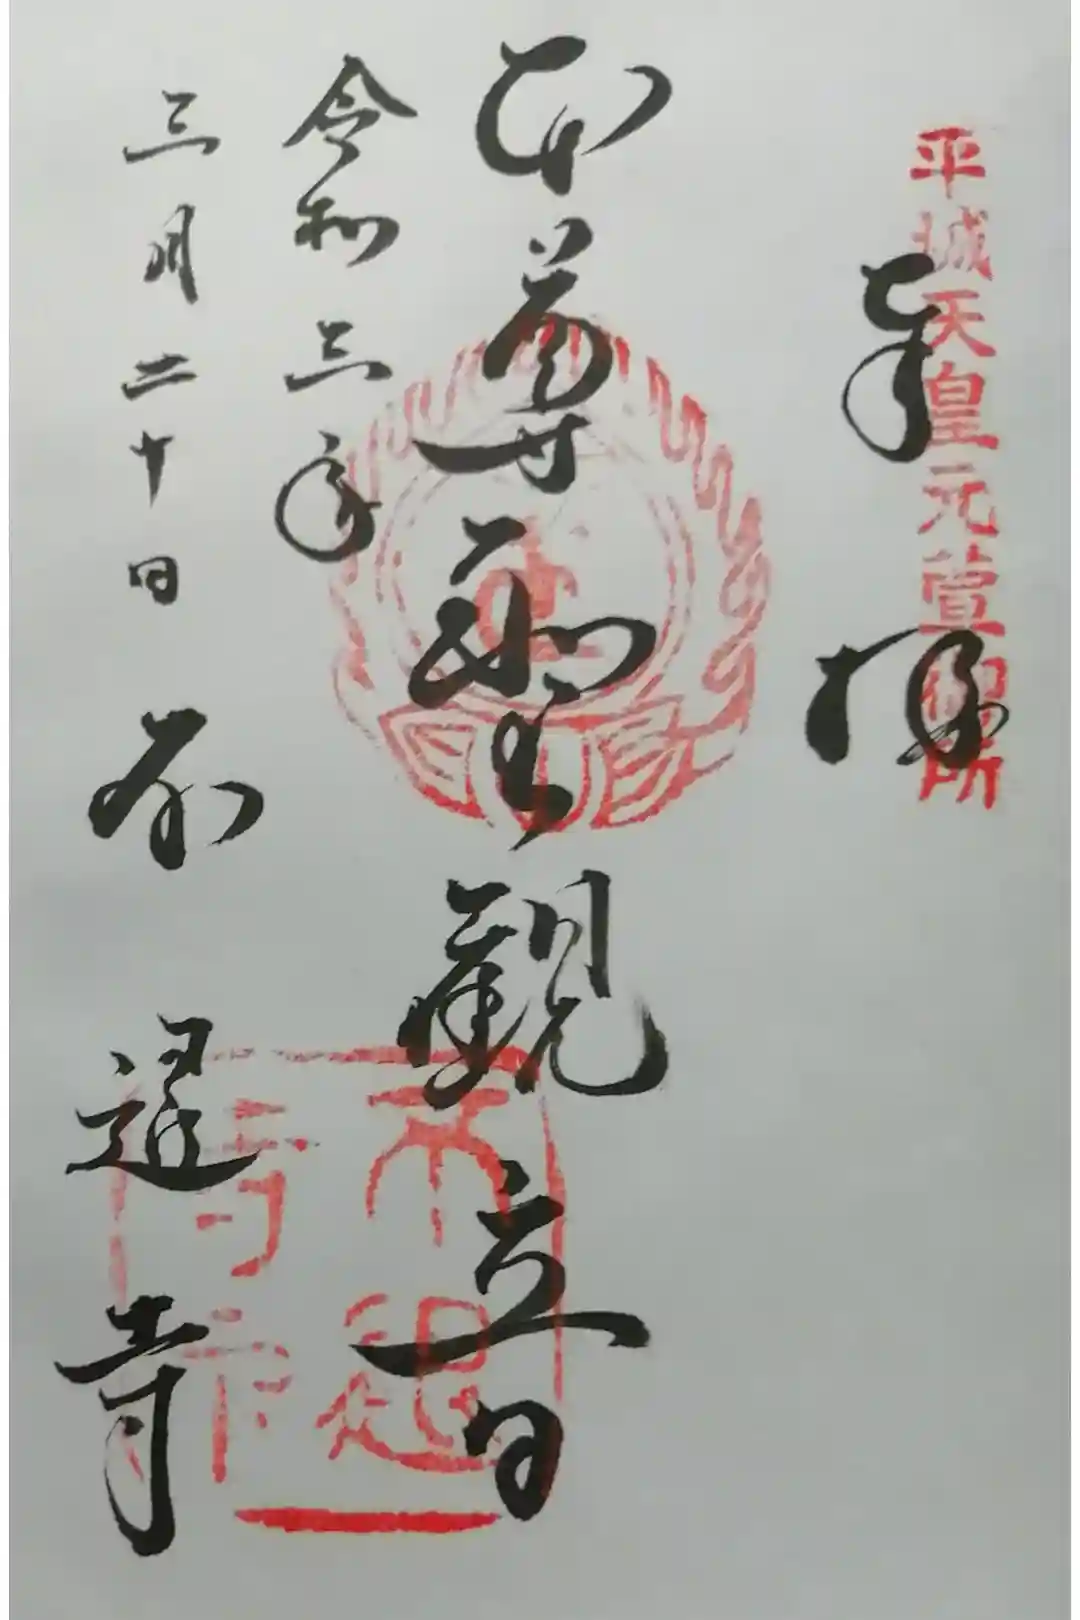 平城天皇元萱御所
奉拝
本尊聖観音
令和三年
三月二十日
不退寺